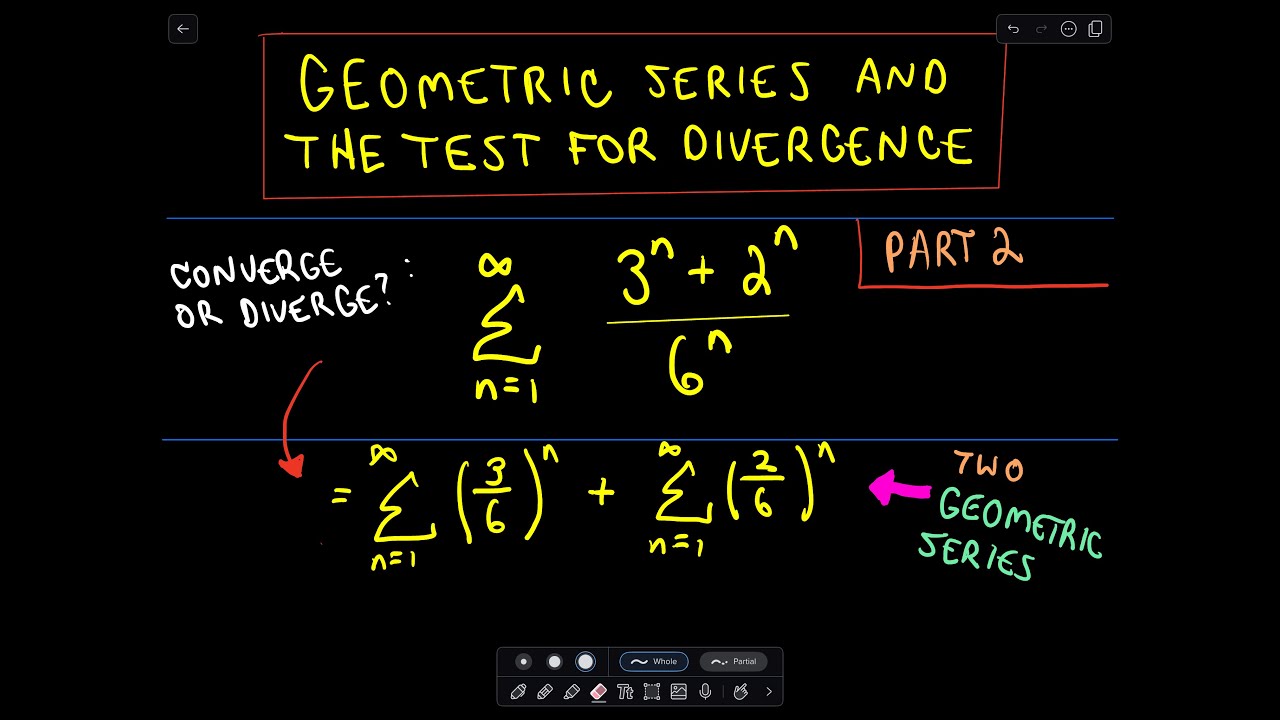 GEOMETRIC SERIES AND
THE TEST FOR DIVERGENCE
PART 2
CONVERGE
OR DIVERGE? :
∞
∑
n=1
3^n + 2^n
6^n
= ∑_{n=1}^{∞} (3/6)^n + ∑_{n=1}^{∞} (2/6)^n
TWO
GEOMETRIC
SERIES
Whole
Partial
Tt